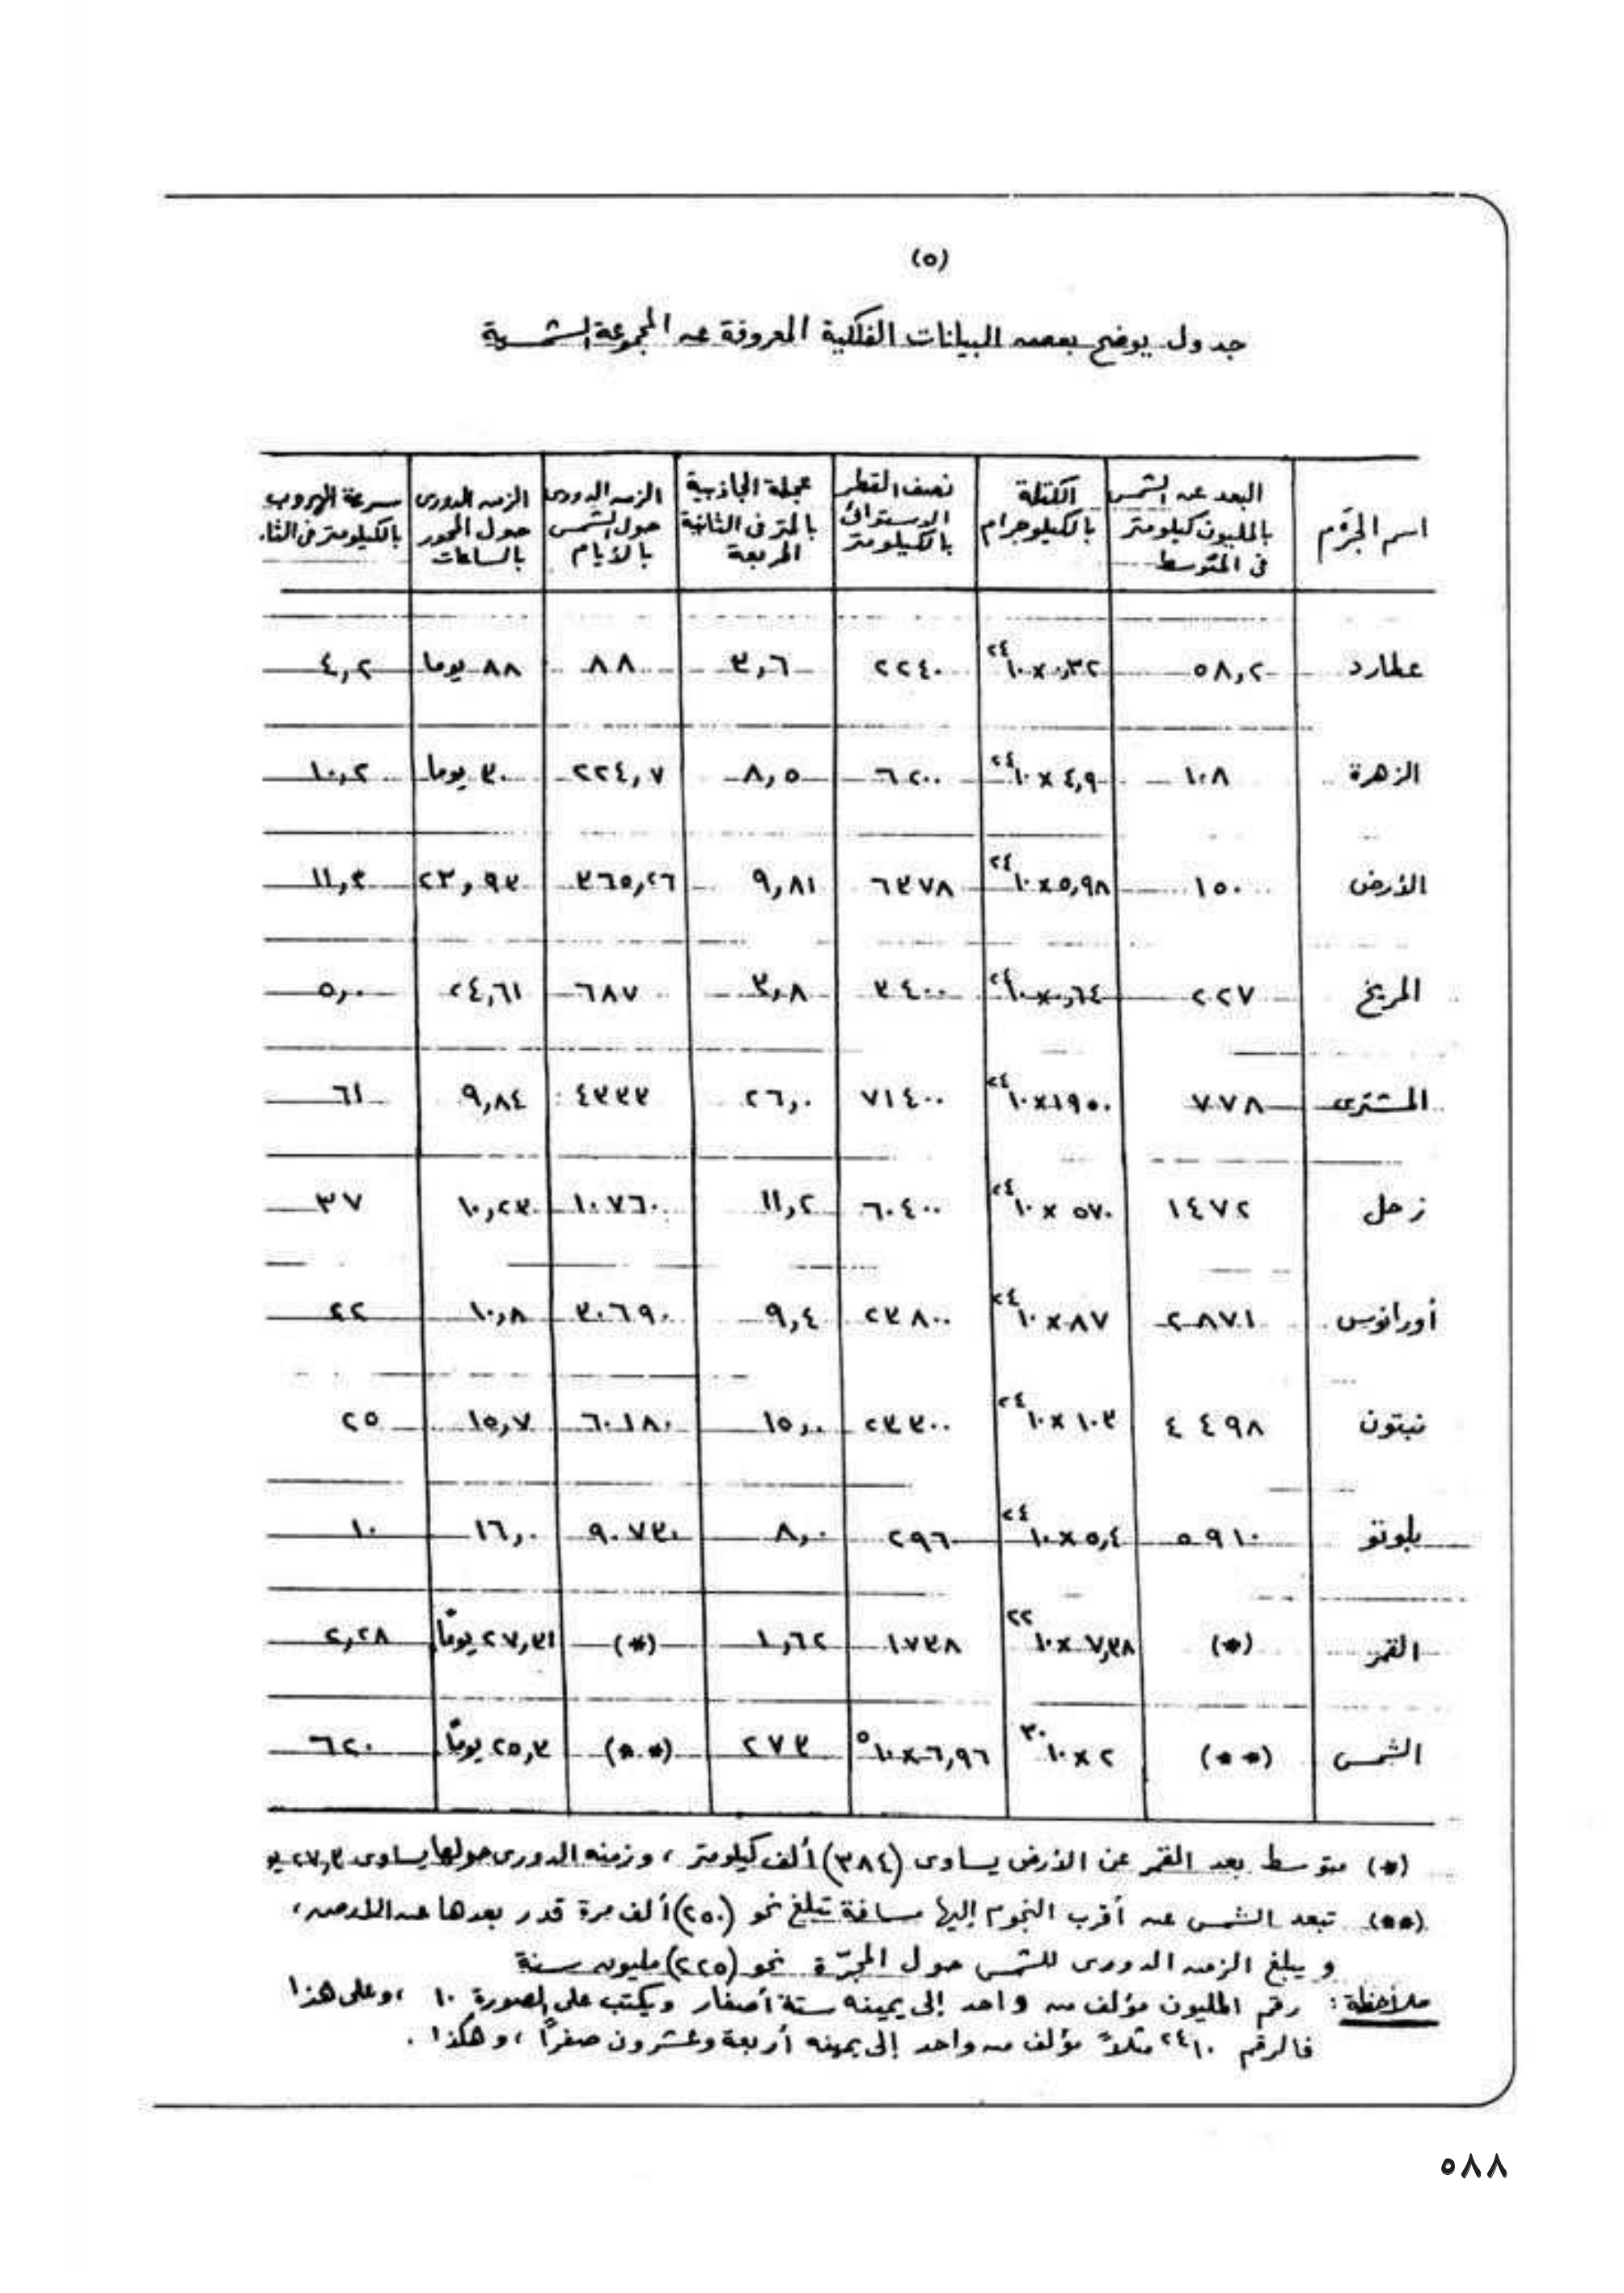 (٥)
جدول يوضح بعض البيانات الفلكية المعروفة عن المجموعة الشمسية
اسم الجِرْم | البعد عن الشمس بالمليون كيلومتر فى المتوسط | الكتلة بالكيلوجرام | نصف القطر الاستوائى بالكيلومتر | عجلة الجاذبية بالمتر فى الثانية المربعة | الزمن الدورى حول الشمس بالأيام | الزمن الدورى حول المحور بالساعات | سرعة الهروب بالكيلومتر فى الثا
عطارد | ٥٨,٢ | ٠,٣٢ × ١٠^٢٤ | ٢٢٤٠ | ٣,٦ | ٨٨ | ٨٨ يوما | ٤,٢
الزهرة | ١٠٨ | ٤,٩ × ١٠^٢٤ | ٦٢٠٠ | ٨,٥ | ٢٢٤,٧ | ٣٠ يوما | ١٠,٢
الأرض | ١٥٠ | ٥,٩٨ × ١٠^٢٤ | ٦٣٧٨ | ٩,٨١ | ٣٦٥,٢٦ | ٢٣,٩٣ | ١١,٣
المريخ | ٢٢٧ | ٠,٦٤ × ١٠^٢٤ | ٣٤٠٠ | ٣,٨ | ٦٨٧ | ٢٤,٦١ | ٥,٠٠
المشترى | ٧٧٨ | ١٩٥٠ × ١٠^٢٤ | ٧١٤٠٠ | ٢٦,٠ | ٤٣٣٣ | ٩,٨٤ | ٦١
زحل | ١٤٧٢ | ٥٧٠ × ١٠^٢٤ | ٦٠٤٠٠ | ١١,٢ | ١٠٧٦٠ | ١٠,٢٣ | ٣٧
أورانوس | ٢٨٧١ | ٨٧ × ١٠^٢٤ | ٢٣٨٠٠ | ٩,٤ | ٣٠٦٩٠ | ١٠,٨ | ٢٢
نبتون | ٤٤٩٨ | ١٠٣ × ١٠^٢٤ | ٢٣٣٠٠ | ١٥,٠ | ٦٠١٨٠ | ١٥,٧ | ٢٥
بلوتو | ٥٩١٠ | ٥,٤ × ١٠^٢٤ | ٢٩٦ | ٨,٠ | ٩٠٧٣٠ | ١٦,٠ | ١٠
القمر | (*) | ٧,٣٨ × ١٠^٢٢ | ١٧٣٨ | ١,٦٢ | (*) | ٢٧,٣١ يومًا | ٢,٢٨
الشمس | (**) | ٢ × ١٠^٣٠ | ٦,٩٦ × ١٠^٥ | ٢٧٣ | (**) | ٢٥,٣ يومًا | ٦٢٠
(*) متوسط بعد القمر عن الأرض يساوى (٣٨٤) ألف كيلومتر ، وزمنه الدورى حولها يساوى ٢٧,٣ يو
(**) تبعد الشمس عن أقرب النجوم إليها مسافة تبلغ نحو (٢٥٠) ألف مرة قدر بعدها عن الأرض ،
و يبلغ الزمن الدورى للشمس حول المجرّة نحو (٢٢٥) مليون سنة
ملاحظة : رقم المليون مؤلف من واحد إلى يمينه ستة أصفار ويكتب على الصورة ١٠ ، وعلى هذا
فالرقم ١٠^٢٤ مثلاً مؤلف من واحد إلى يمينه أربعة وعشرون صفراً ، وهكذا .
٥٨٨